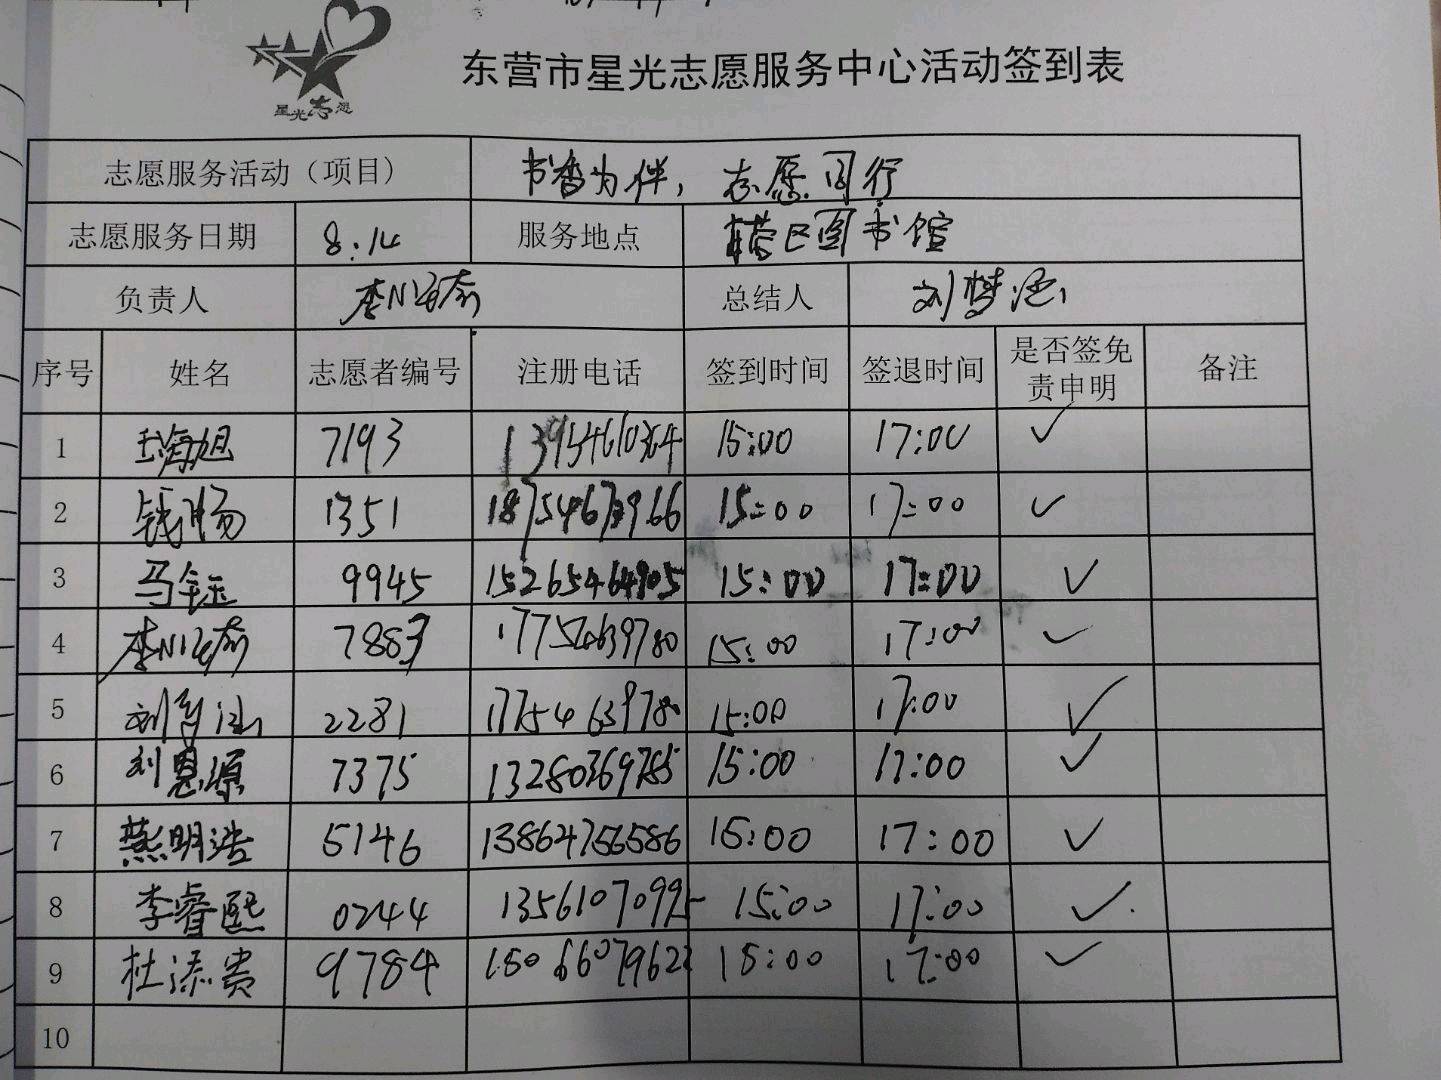 星光志愿
东营市星光志愿服务中心活动签到表
志愿服务活动（项目） 书香为伴，志愿同行
志愿服务日期 8.14 服务地点 东营区图书馆
负责人 总结人 刘梦涵
序号 姓名 志愿者编号 注册电话 签到时间 签退时间 是否签免责申明 备注
1 王海旭 7193 13954610364 15:00 17:00 ✓
2 钱畅 1351 15:00 17:00 ✓
3 马钰 9945 15265464905 15:00 17:00 ✓
4 7883 17754639780 15:00 17:00 ✓
5 2281 17754639780 15:00 17:00 ✓
6 刘恩源 7375 13280369785 15:00 17:00 ✓
7 燕明浩 5146 13864756586 15:00 17:00 ✓
8 李睿熙 0244 13561070995 15:00 17:00 ✓
9 杜添贵 9784 15:00 17:00 ✓
10